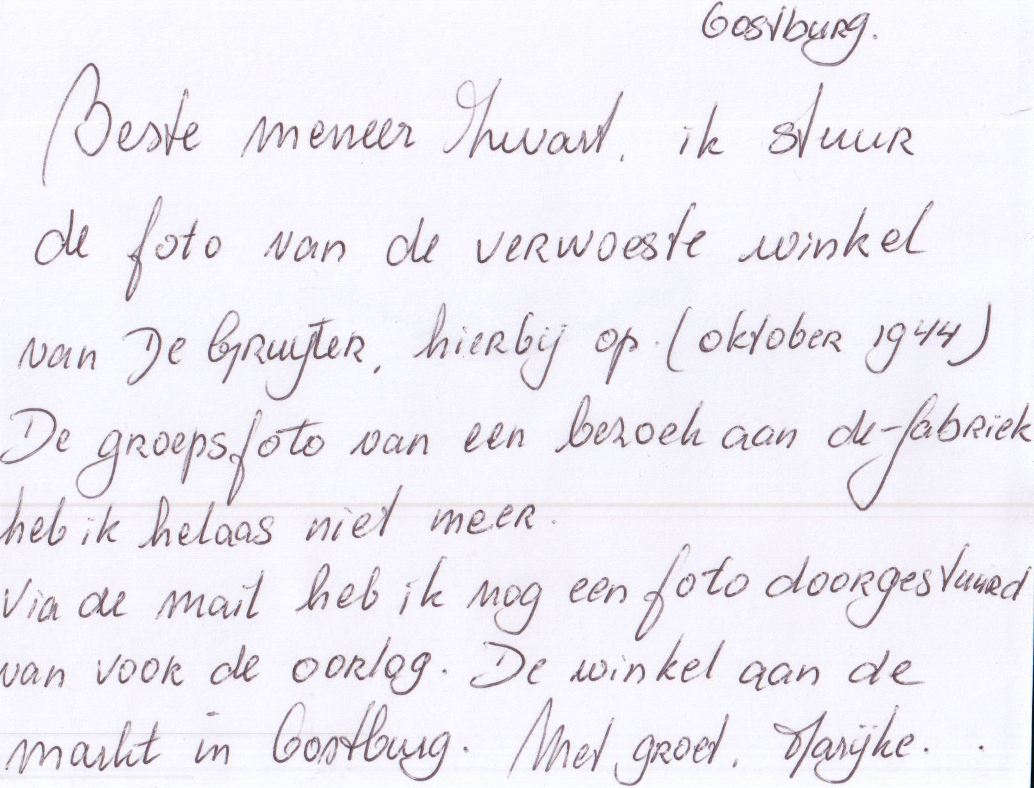 Oostburg.
Beste meneer Zwart, ik stuur
de foto van de verwoeste winkel
van De Gruijter, hierbij op. (oktober 1944)
De groepsfoto van een bezoek aan de fabriek
heb ik helaas niet meer.
Via de mail heb ik nog een foto doorgestuurd
van voor de oorlog. De winkel aan de
markt in Oostburg. Met groet, Marijke.